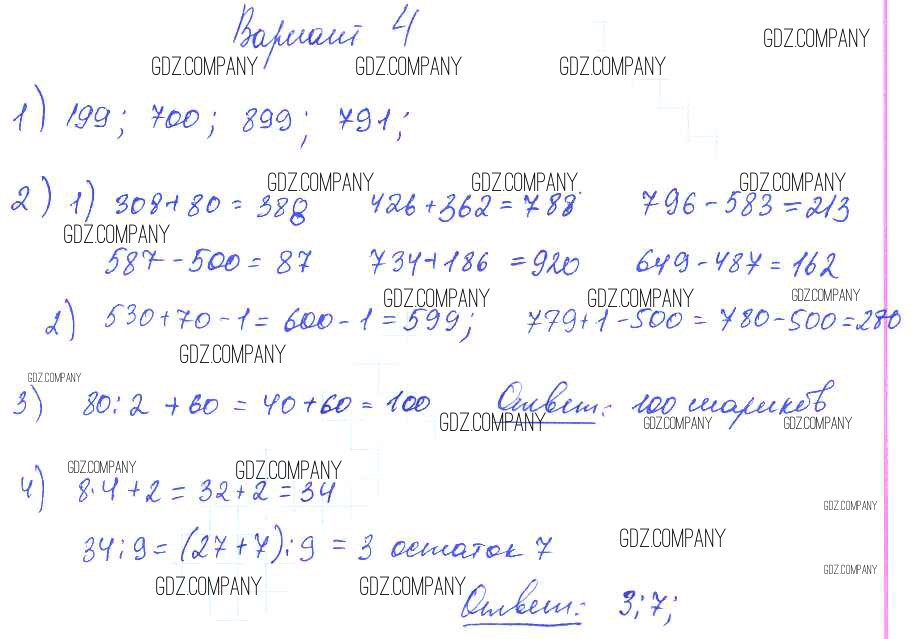 Вариант 4
GDZ.COMPANY
GDZ.COMPANY GDZ.COMPANY GDZ.COMPANY
1) 199; 700; 899; 791;
GDZ.COMPANY GDZ.COMPANY GDZ.COMPANY
2) 1) 308+80=388 426+362=788 796-583=213
GDZ.COMPANY
587-500=87 734+186=920 649-487=162
GDZ.COMPANY GDZ.COMPANY GDZ.COMPANY
2) 530+70-1=600-1=599; 779+1-500=780-500=280
GDZ.COMPANY
GDZ.COMPANY
3) 80:2+60=40+60=100 Ответ: 100 шариков
GDZ.COMPANY GDZ.COMPANY GDZ.COMPANY
GDZ.COMPANY GDZ.COMPANY
4) 8·4+2=32+2=34
GDZ.COMPANY
34:9=(27+7):9=3 остаток 7
GDZ.COMPANY
GDZ.COMPANY
GDZ.COMPANY GDZ.COMPANY
Ответ: 3; 7;